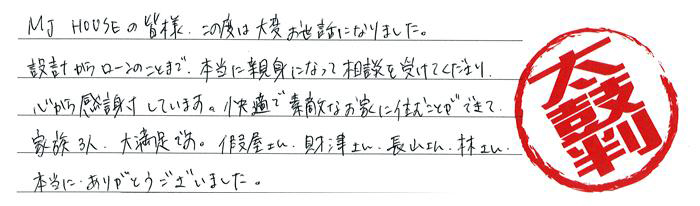 MJ HOUSEの皆様、この度は大変お世話になりました。
設計からローンのことまで、本当に親身になって相談を受けてくださり、
心から感謝しています。快適で素敵なお家に住むことができて、
家族3人、大満足です。仮屋さん、財津さん、長山さん、林さん、
本当に、ありがとうございました。
太鼓判